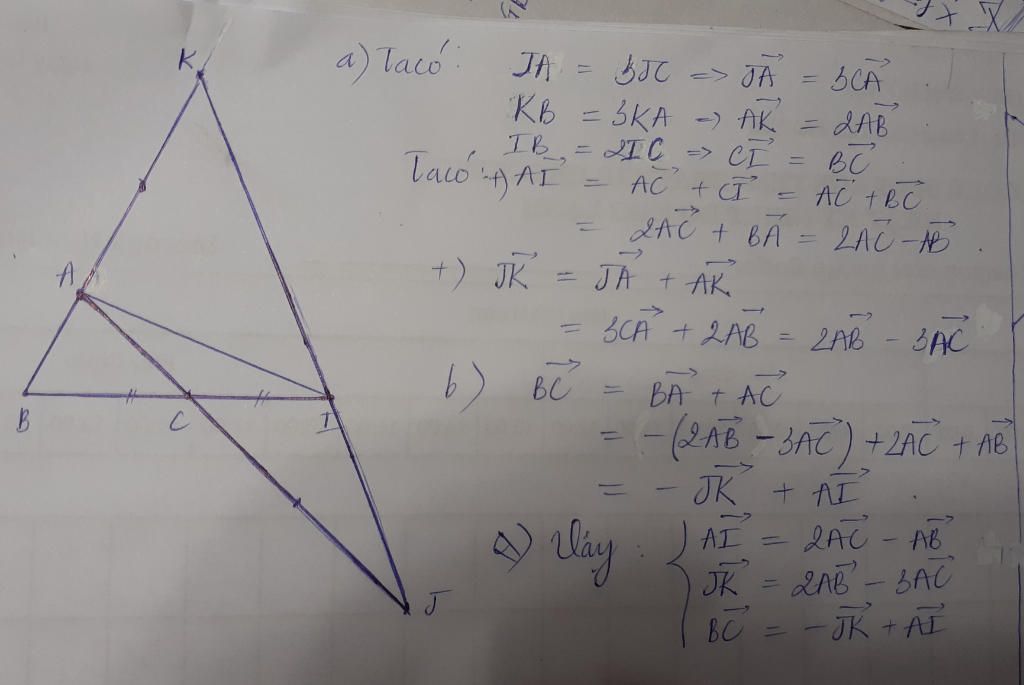 K
A
B
C
I
J
a) Ta có: JA = 3JC => \overrightarrow{JA} = 3\overrightarrow{CA}
KB = 3KA => \overrightarrow{AK} = 2\overrightarrow{AB}
IB = 2IC => \overrightarrow{CI} = \overrightarrow{BC}
Ta có: +) \overrightarrow{AI} = \overrightarrow{AC} + \overrightarrow{CI} = \overrightarrow{AC} + \overrightarrow{BC}
= 2\overrightarrow{AC} + \overrightarrow{BA} = 2\overrightarrow{AC} - \overrightarrow{AB}
+) \overrightarrow{JK} = \overrightarrow{JA} + \overrightarrow{AK}
= 3\overrightarrow{CA} + 2\overrightarrow{AB} = 2\overrightarrow{AB} - 3\overrightarrow{AC}
b) \overrightarrow{BC} = \overrightarrow{BA} + \overrightarrow{AC}
= -(2\overrightarrow{AB} - 3\overrightarrow{AC}) + 2\overrightarrow{AC} + \overrightarrow{AB}
= -\overrightarrow{JK} + \overrightarrow{AI}
Vậy: { \overrightarrow{AI} = 2\overrightarrow{AC} - \overrightarrow{AB}
\overrightarrow{JK} = 2\overrightarrow{AB} - 3\overrightarrow{AC}
\overrightarrow{BC} = -\overrightarrow{JK} + \overrightarrow{AI}